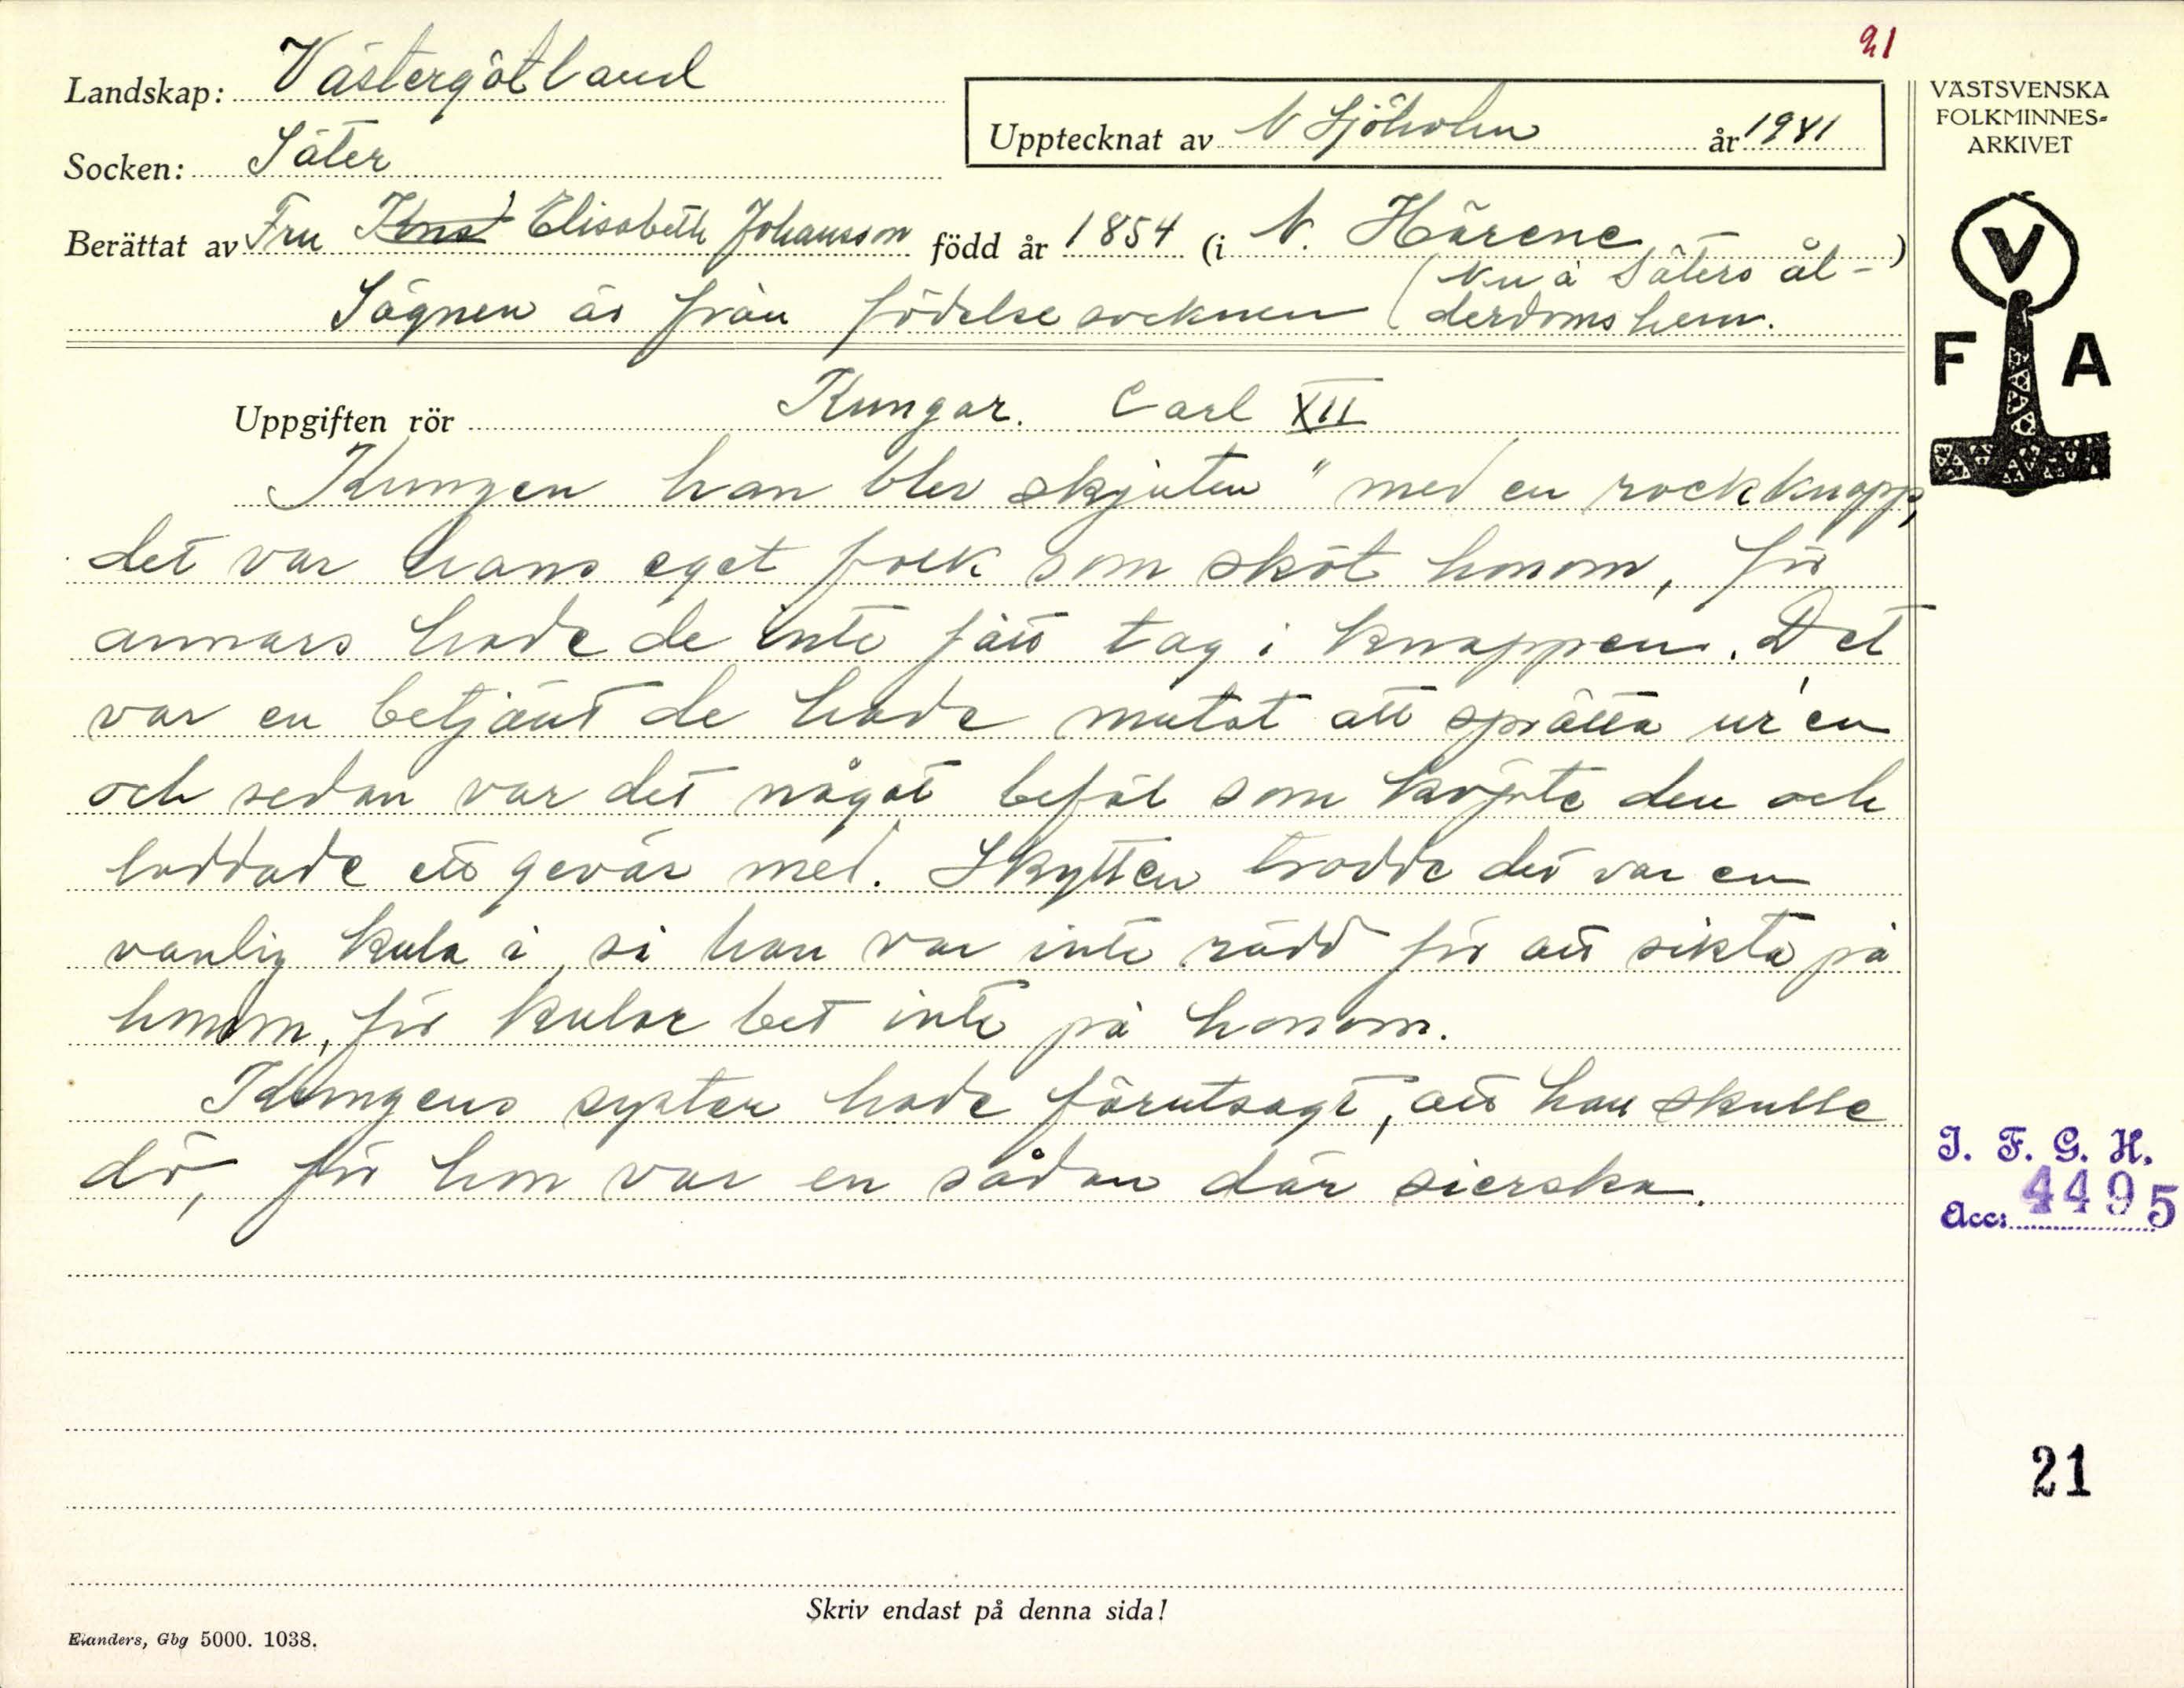 21
Landskap: Västergötland
Socken: Säter
Upptecknat av N Sjöholm år 1941
Berättat av Fru Elisabeth Johansson född år 1854 (i N. Härene)
Sägnen är från födelsesocknen (Nu å Säters ål-
derdomshem.
Uppgiften rör Kungar. Carl XII
Kungen han blev skjuten "med en rockknapp,
det var hans eget folk som sköt honom, för
annars hade de inte fått tag i knappen. Det
var en betjänt de hade mutat att sprätta ur'en
och sedan var det något befäl som köpte den och
laddade ett gevär med. Skytten trodde det var en
vanlig kula i, så han var inte rädd för att sikta på
honom, för kulor bet inte på honom.
Kungens syster hade förutsagt, att han skulle
dö, för hon var en sådan där sierska.
Skriv endast på denna sida!
Elanders, Gbg 5000. 1038.
VÄSTSVENSKA
FOLKMINNES-
ARKIVET
V
F A
I. F. G. H.
Acc: 4495
21